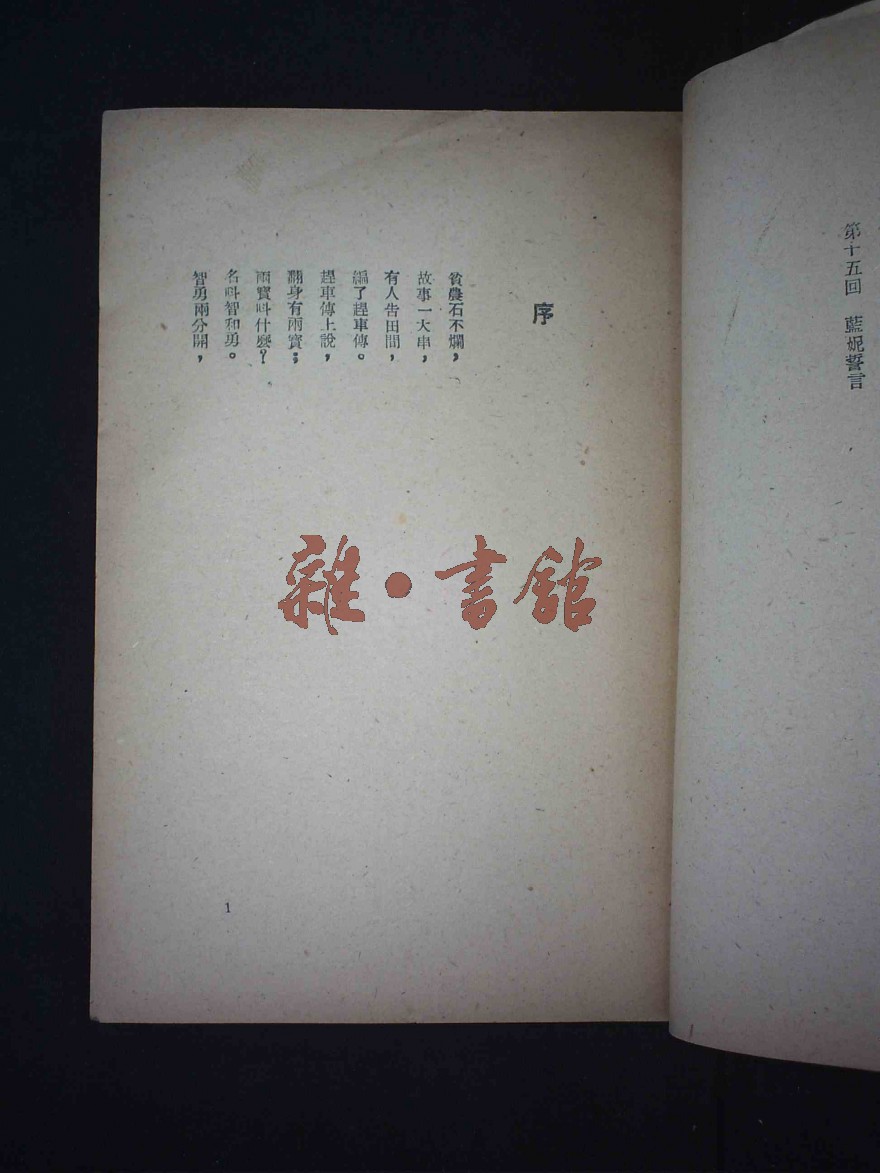 第十五回　藍妮誓言
序
貧農石不爛，
故事一大串，
有人告田間，
編了趕車傳。
趕車傳上說，
翻身有兩寶；
兩寶叫什麼？
名叫智和勇。
智勇兩分開，
1
雜·書館